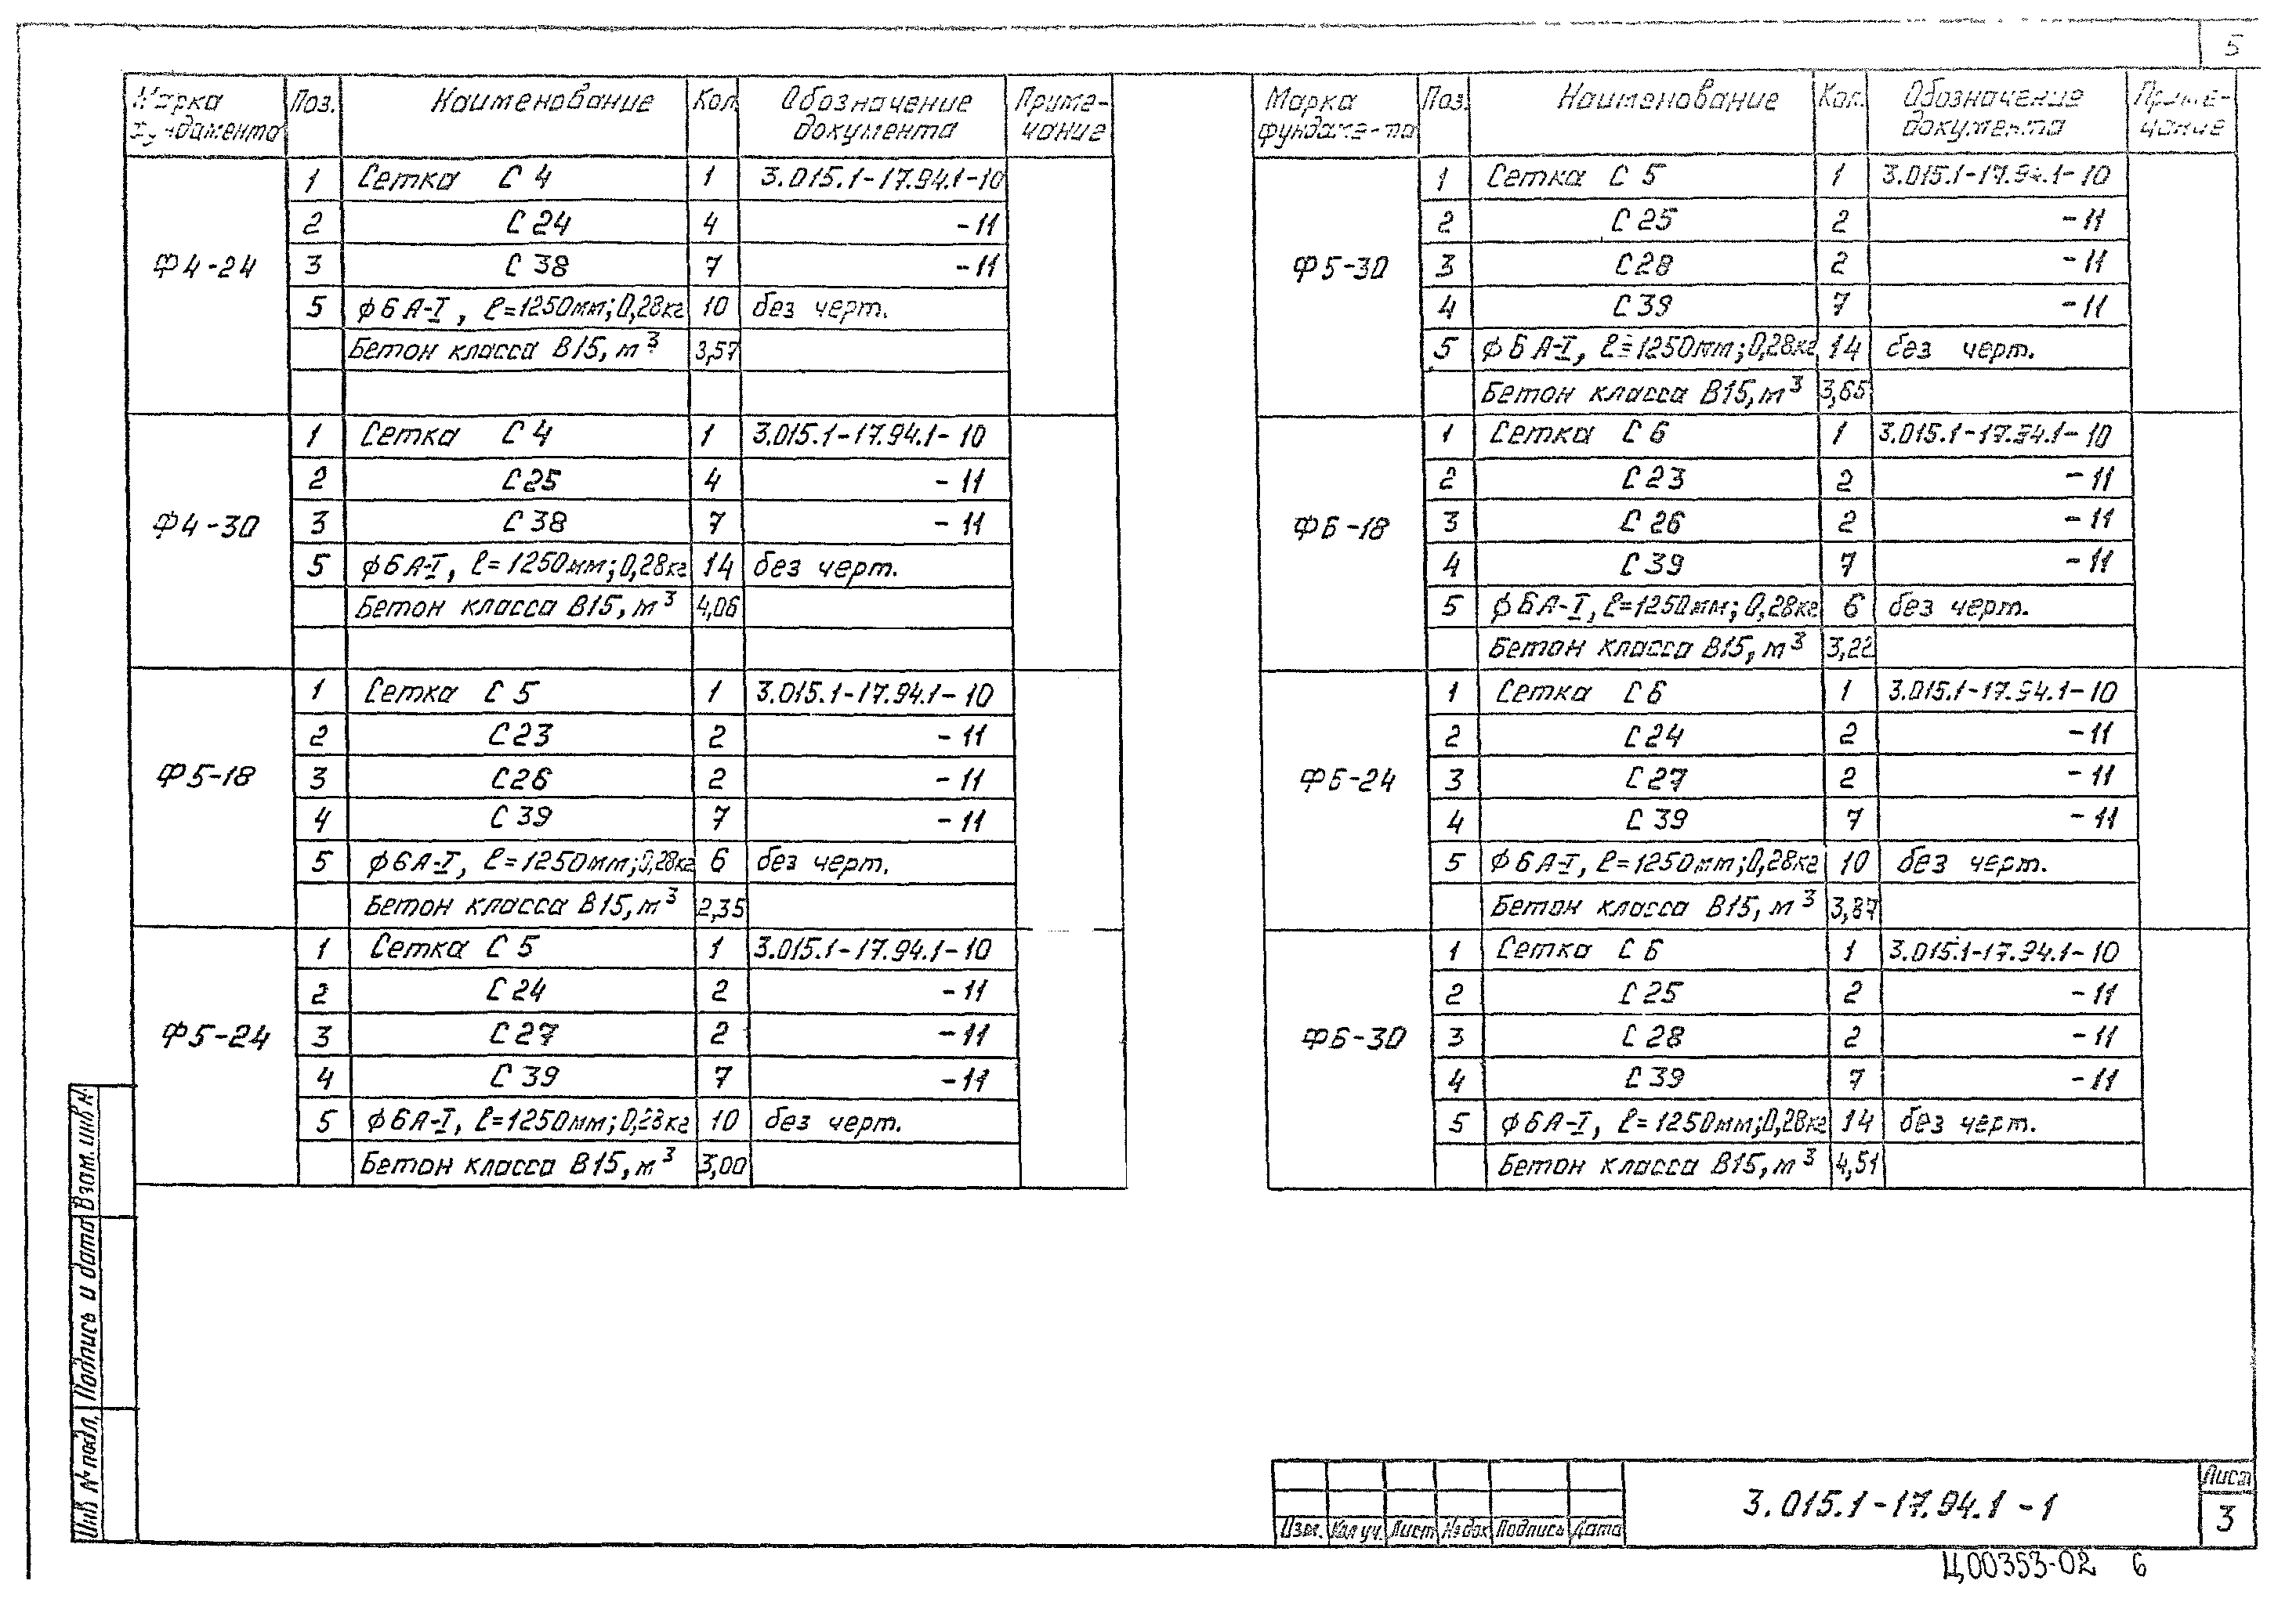 5
Марка Поз. Наименование Кол. Обозначение Приме-
фундамента документа чание
Ф4-24
1 Сетка С 4 1 3.015.1-17.94.1-10
2 С 24 4 -11
3 С 38 7 -11
5 ф6А-I, ℓ=1250мм; 0,28кг 10 без черт.
Бетон класса В15, м³ 3,57
Ф4-30
1 Сетка С 4 1 3.015.1-17.94.1-10
2 С25 4 -11
3 С 38 7 -11
5 ф6А-I, ℓ=1250мм; 0,28кг 14 без черт.
Бетон класса В15, м³ 4,06
Ф5-18
1 Сетка С 5 1 3.015.1-17.94.1-10
2 С23 2 -11
3 С26 2 -11
4 С 39 7 -11
5 ф6А-I, ℓ=1250мм; 0,28кг 6 без черт.
Бетон класса В15, м³ 2,35
Ф5-24
1 Сетка С 5 1 3.015.1-17.94.1-10
2 С24 2 -11
3 С27 2 -11
4 С 39 7 -11
5 ф6А-I, ℓ=1250мм; 0,28кг 10 без черт.
Бетон класса В15, м³ 3,00
Марка Поз. Наименование Кол. Обозначение Приме-
фундамента документа чание
Ф5-30
1 Сетка С 5 1 3.015.1-17.94.1-10
2 С25 2 -11
3 С28 2 -11
4 С39 7 -11
5 ф6А-I, ℓ=1250мм; 0,28кг 14 без черт.
Бетон класса В15, м³ 3,65
Ф6-18
1 Сетка С 6 1 3.015.1-17.94.1-10
2 С23 2 -11
3 С 26 2 -11
4 С 39 7 -11
5 ф6А-I, ℓ=1250мм; 0,28кг 6 без черт.
Бетон класса В15, м³ 3,22
Ф6-24
1 Сетка С6 1 3.015.1-17.94.1-10
2 С24 2 -11
3 С27 2 -11
4 С 39 7 -11
5 ф6А-I, ℓ=1250мм; 0,28кг 10 без черт.
Бетон класса В15, м³ 3,87
Ф6-30
1 Сетка С 6 1 3.015.1-17.94.1-10
2 С25 2 -11
3 С 28 2 -11
4 С 39 7 -11
5 ф6А-I, ℓ=1250мм; 0,28кг 14 без черт.
Бетон класса В15, м³ 4,51
Взам. инв №
Подпись и дата
Инв № подл.
Изм. Кол уч. Лист №док Подпись Дата
3.015.1-17.94.1-1
Лист
3
Ц00353-02 6